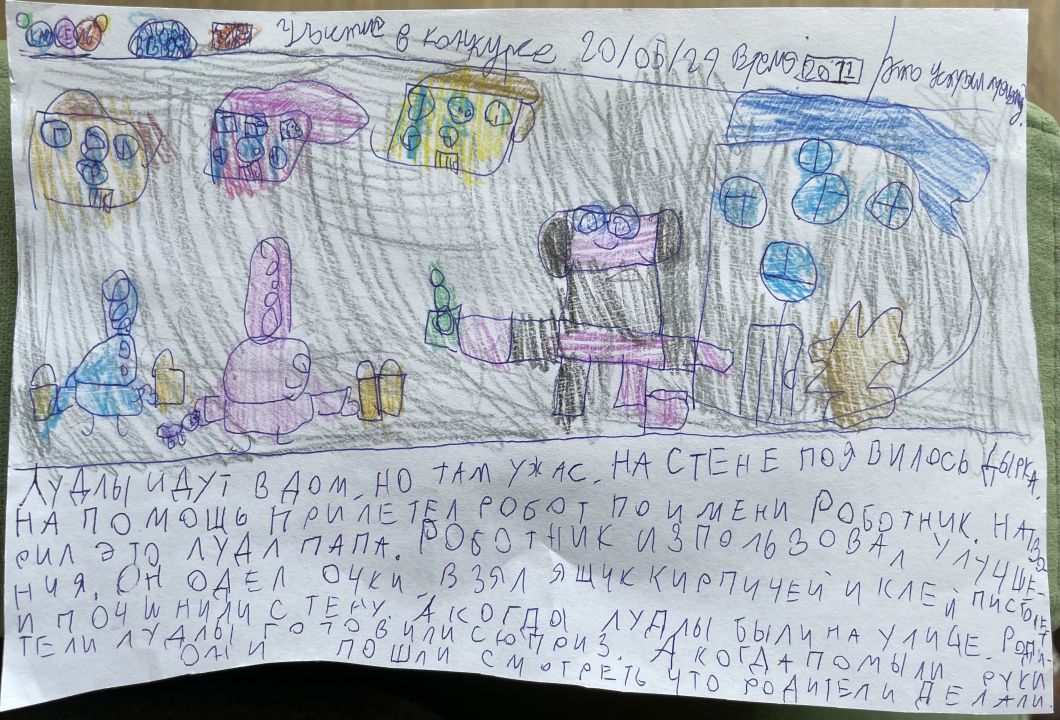 Участие в конкурсе 20/05/24 Время 2012
ЛУДЛЫ ИДУТ В ДОМ, НО ТАМ УЖАС. НА СТЕНЕ ПОЯВИЛОСЬ ДЫРКА.
НА ПОМОЩЬ ПРИЛЕТЕЛ РОБОТ ПО ИМЕНИ РОБОТНИК. НАТВО
РИЛ ЭТО ЛУДЛ ПАПА. РОБОТНИК ИЗПОЛЬЗОВАЛ УЛУЧШЕ-
НИЯ. ОН ОДЕЛ ОЧКИ, ВЗЯЛ ЯЩИК КИРПИЧЕЙ И КЛЕЙ ПИСТОЛЕТ
И ПОЧИНИЛИ СТЕНУ. А КОГДЫ ЛУДЛЫ БЫЛИ НА УЛИЦЕ. РОДИ-
ТЕЛИ ЛУДЛЫ ГОТОВИЛИ СЮПРИЗ. А КОГДА ПОМЫЛИ РУКИ
ОНИ ПОШЛИ СМОТРЕТЬ ЧТО РОДИТЕЛИ ДЕЛАЛИ.